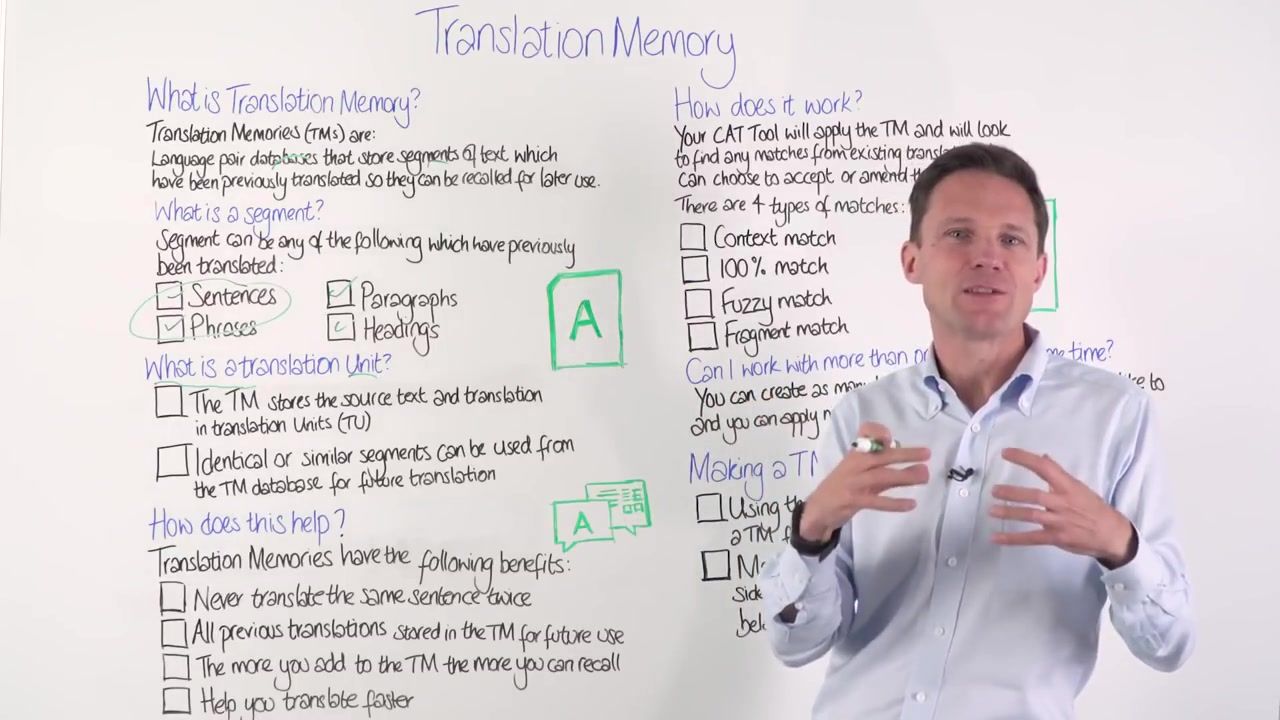 Translation Memory
What is Translation Memory?
Translation Memories (TMs) are:
Language pair databases that store segments of text which
have been previously translated so they can be recalled for later use.
What is a segment?
Segment can be any of the following which have previously
been translated:
Sentences
Paragraphs
Phrases
Headings
A
What is a translation Unit?
The TM stores the source text and translation
in translation Units (TU)
Identical or similar segments can be used from
the TM database for future translation
How does this help?
A
Translation Memories have the following benefits:
Never translate the same sentence twice
All previous translations stored in the TM for future use
The more you add to the TM the more you can recall
Help you translate faster
How does it work?
Your CAT Tool will apply the TM and will look
to find any matches from existing
can choose to accept or amend
There are 4 types of matches:
Context match
100% match
Fuzzy match
Fragment match
Can I work with more than time?
You can create as to
and you can apply
Making a TM
Using
a TM